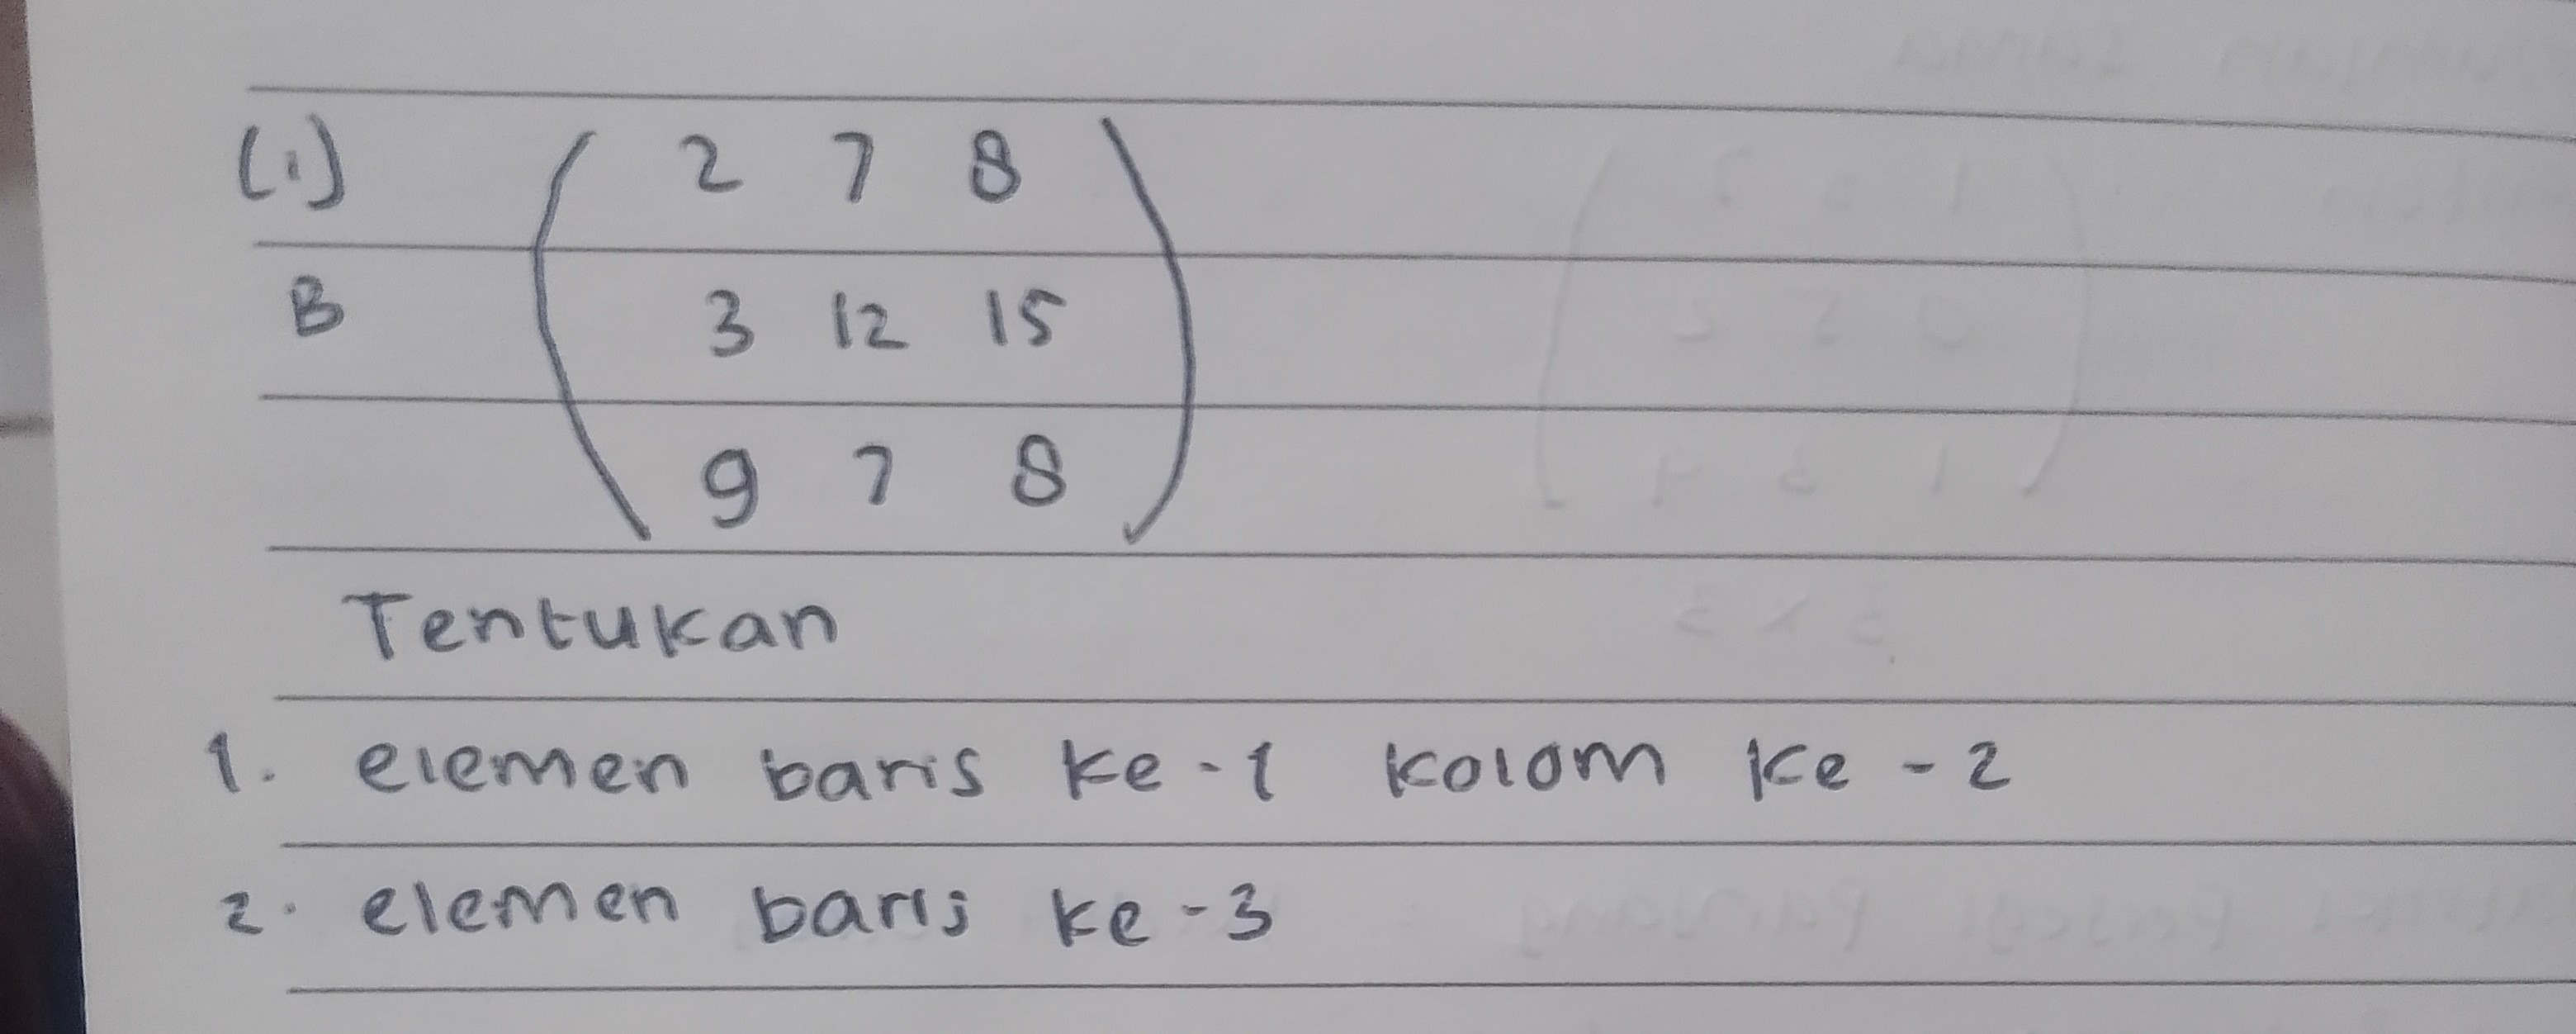 (1) 2 7 8
B 3 12 15
9 7 8
Tentukan
1. elemen baris ke-1 kolom ke-2
2. elemen baris ke-3